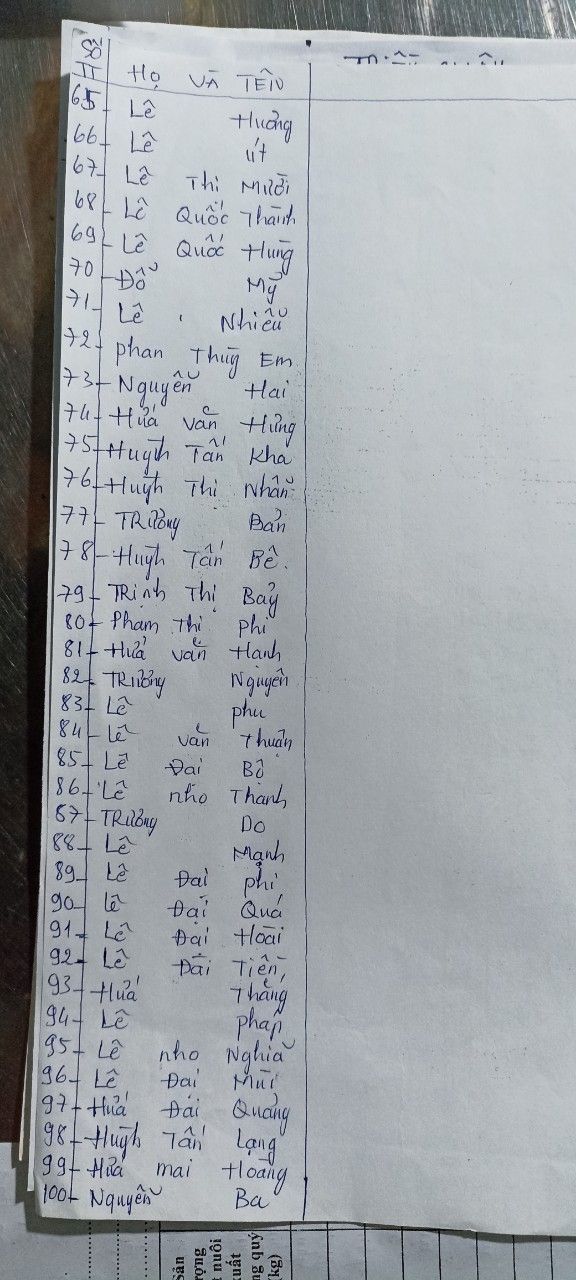 Số TT Họ VÀ TÊN
65 Lê Hưởng
66 Lê Út
67 Lê Thị Mười
68 Lê Quốc Thành
69 Lê Quốc Hùng
70 Đỗ Mỹ
71 Lê Nhiễu
72 phan Thuỳ Em
73 Nguyễn Hai
74 Hứa văn Hưng
75 Huỳnh Tấn Kha
76 Huỳnh Thị Nhẫn
77 TRương Bản
78 Huỳnh Tấn Bê.
79 TRịnh Thị Bảy
80 Phạm Thị phi
81 Hứa văn Hạnh
82 TRương Nguyên
83 Lê phu
84 Lê văn Thuận
85 Lê Đại Bộ
86 Lê nho Thanh
87 TRương Do
88 Lê Mạnh
89 Lê Đại phi
90 Lê Đại Quá
91 Lê Đại Hoài
92 Lê Đại Tiến,
93 Hứa Thắng
94 Lê pháp
95 Lê nho Nghĩa
96 Lê Đại Mùi
97 Hứa Đại Quang
98 Huỳnh Tấn Lạng
99 Hứa mai Hoàng
100 Nguyễn Ba